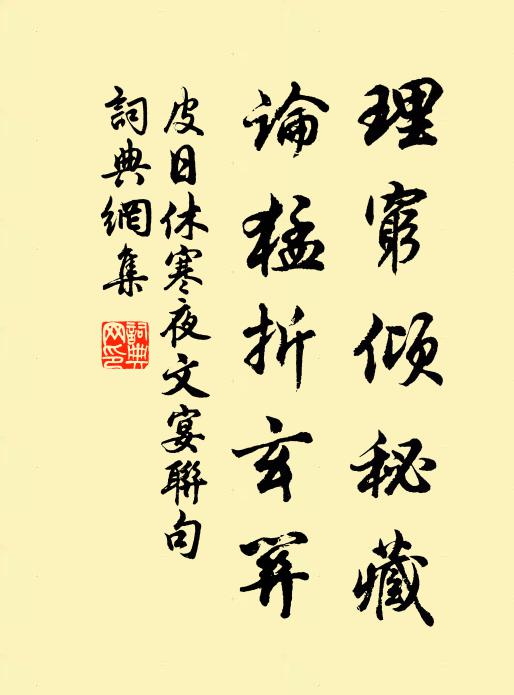 理窮傾秘藏
論猛折玄筭
皮日休寒夜文宴聯句
詞典網集
詞典網印